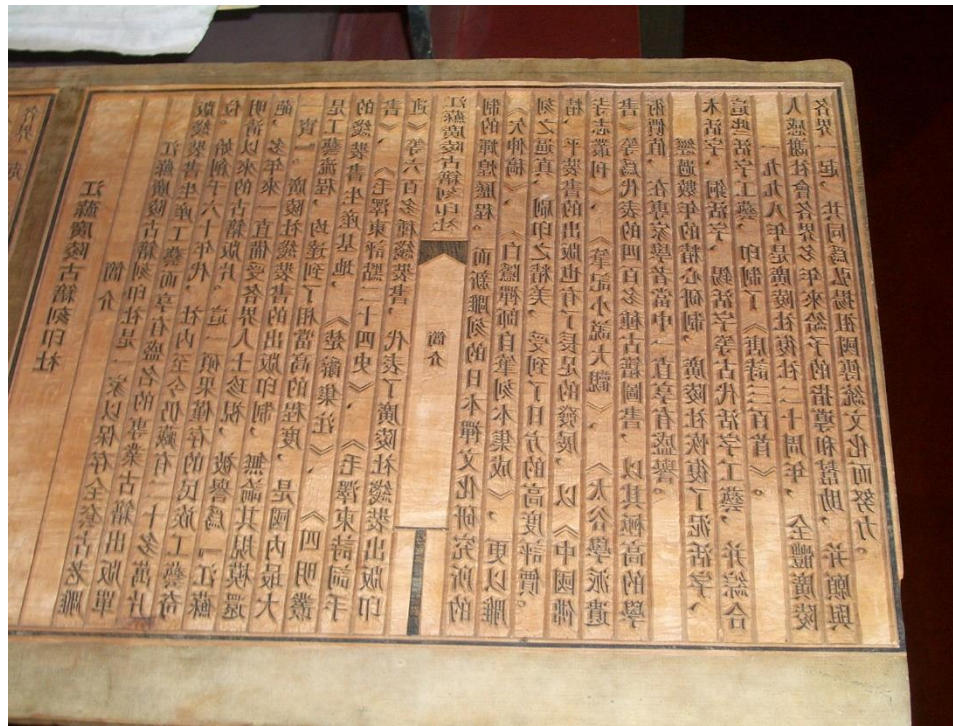 江蘇廣陵古籍刻印社
簡介
江蘇廣陵古籍刻印社是一家以保存全套古老雕
版綫裝書生產工藝而享有盛名的專業古籍出版單
位。始創于六十年代，社內至今仍藏有二十多萬片
明清以來的古籍版片。這一碩果僅存的民族工藝奇
葩，多年來一直備受各界人士珍視，被譽爲「江蘇
一寶」。廣陵社綫裝書的出版印制，無論其規模還
是工藝流程，均達到了相當高的程度，是國內最大
的綫裝書生產基地，《楚辭集注》、《四明叢
書》、《毛澤東評點二十四史》、《毛澤東詩詞手
迹》等六百多種綫裝書，代表了廣陵社綫裝出版印
江蘇廣陵古籍刻印社
簡介
制的輝煌歷程。而新雕刻的日本禪文化研究所的
《矢伸稿》、《白隱禪師自筆刻本集成》，更以雕
刻之逼真，刷印之精美，受到了日方的高度評價。
精、平裝書的出版也有了長足的發展，以《中國佛
寺志叢刊》、《筆記小說大觀》、《太谷學派遺
書》等爲代表的四百多種古籍圖書，以其極高的學
術價值，在專家學者當中一直享有盛譽。
經過數年的精心研制，廣陵社恢復了泥活字、
木活字、銅活字、錫活字等古代活字工藝，并綜合
這些活字工藝，印制了《唐詩三百首》。
一九九八年是廣陵社復社二十周年，全體廣陵
人感謝社會各界多年來給予的指導和幫助，并願與
各界一起，共同爲弘揚祖國傳統文化而努力。